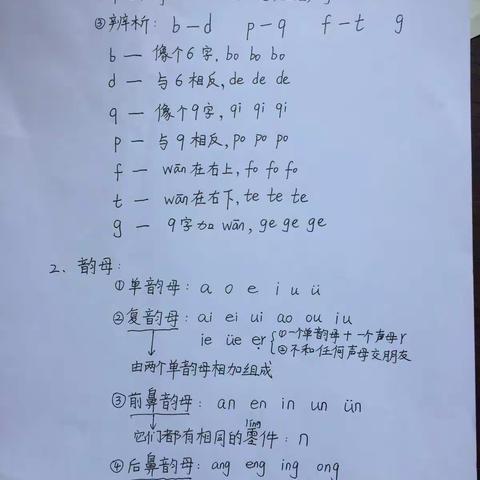 ③辨析: b—d p—q f—t g
b — 像个6字, bo bo bo
d — 与6相反, de de de
q — 像个9字, qi qi qi
p — 与9相反, po po po
f — wān在右上, fo fo fo
t — wān在右下, te te te
g — 9字加wān, ge ge ge
2、韵母:
①单韵母: a o e i u ü
②复韵母: ai ei ui ao ou iu
ie üe er
①一个单韵母+一个声母r
②不和任何声母交朋友
由两个单韵母相加组成
③前鼻韵母: an en in un ün
líng
它们都有相同的零件: n
④后鼻韵母: ang eng ing ong